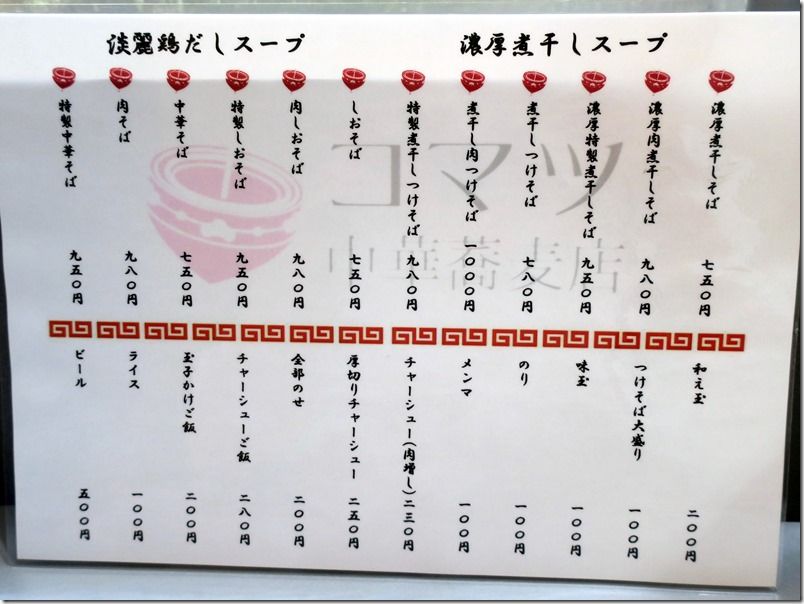 濃厚煮干しスープ
濃厚煮干しそば 七五〇円
濃厚肉煮干しそば 九八〇円
濃厚特製煮干しそば 九五〇円
煮干しつけそば 七八〇円
煮干し肉つけそば 一〇〇〇円
特製煮干しつけそば 九八〇円
淡麗鶏だしスープ
しおそば 七五〇円
肉しおそば 九八〇円
特製しおそば 九五〇円
中華そば 七五〇円
肉そば 九八〇円
特製中華そば 九五〇円
コマツ
中華蕎麦店
和え玉 二〇〇円
つけそば大盛り 一〇〇円
味玉 一〇〇円
のり 一〇〇円
メンマ 一〇〇円
チャーシュー(肉増し) 二三〇円
厚切りチャーシュー 二五〇円
全部のせ 二〇〇円
チャーシューご飯 二八〇円
玉子かけご飯 二〇〇円
ライス 一〇〇円
ビール 五〇〇円